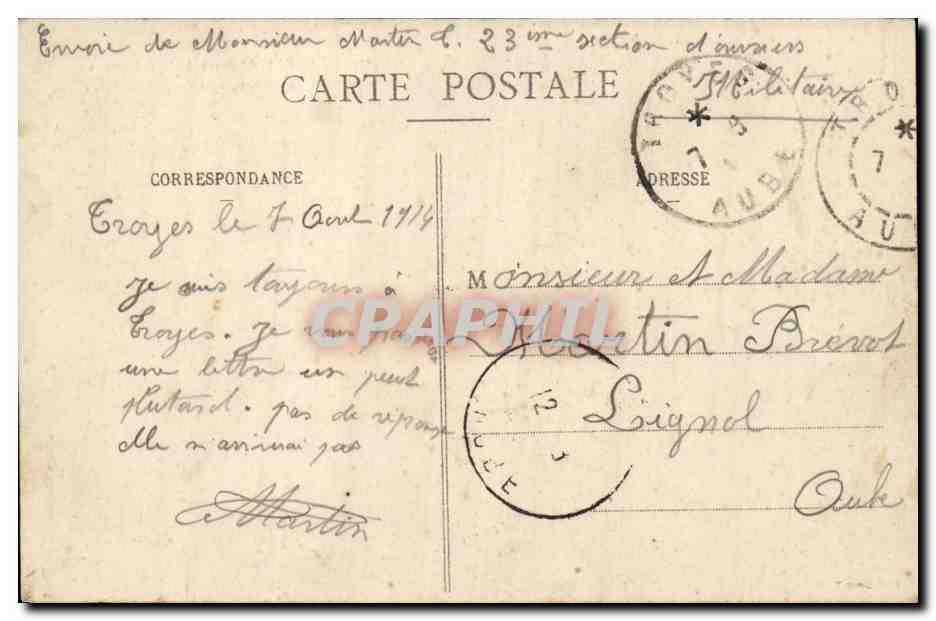 Envoie de Monsieur Martin C. 23 ième section d'ouvriers
Militaires
CARTE POSTALE
TROYES
* 7 8
AUBE
TRO
* 7
AU
CORRESPONDANCE
ADRESSE
Troyes le 7 Aout 1914
Je suis toujours à
Troyes. Je vous
une lettre un peut
plutard. pas de réponse
elle n'arriverai pas
Martin
Monsieur et Madame
Martin Prévot
Lignol
Aube
12
AUBE
CPAPHIL